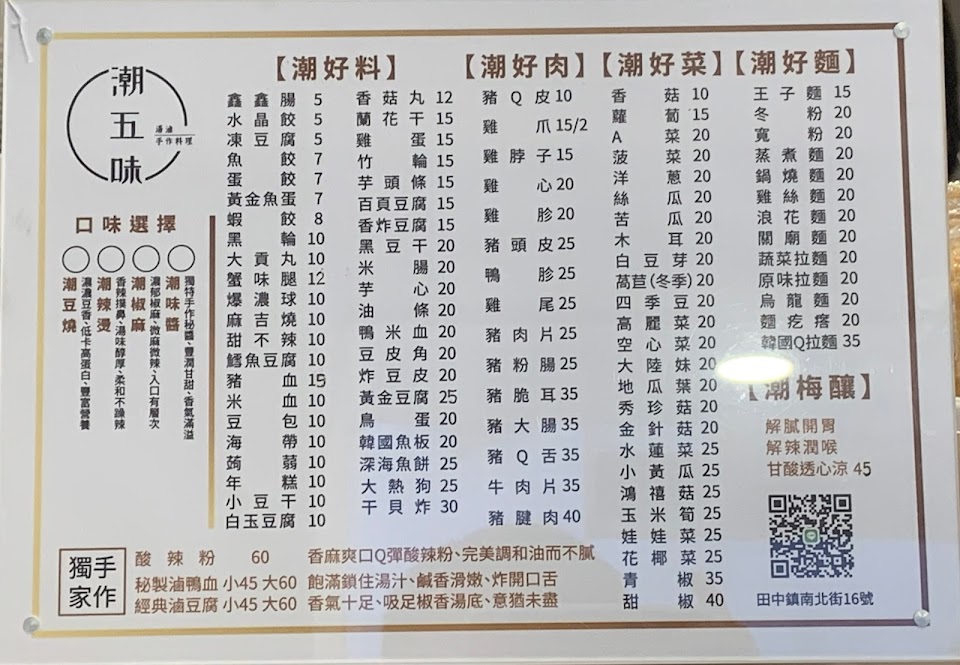 潮五味
湯滷
手作料理
口味選擇
潮味醬
獨特手作秘醬、豐潤甘甜、香氣滿溢
潮椒麻
濃郁椒麻、微麻微辣、入口有層次
潮辣燙
香辣撲鼻、湯味醇厚、柔和不躁辣
潮豆燒
濃濃豆香、低卡高蛋白、豐富營養
【潮好料】
鑫鑫腸 5
水晶餃 5
凍豆腐 5
魚餃 7
蛋餃 7
黃金魚蛋 7
蝦餃 8
黑輪 10
大貢丸 10
蟹味腿 12
爆濃球 10
麻吉燒 10
甜不辣 10
鱈魚豆腐 10
豬血 15
米血 10
豆包 10
海帶 10
蒟蒻 10
年糕 10
小豆干 10
白玉豆腐 10
香菇丸 12
蘭花干 15
雞蛋 15
竹輪 15
芋頭條 15
百頁豆腐 15
香炸豆腐 15
黑豆干 20
米腸 20
芋心 20
油條 20
鴨米血 20
豆皮角 20
炸豆皮 20
黃金豆腐 25
鳥蛋 20
韓國魚板 20
深海魚餅 25
大熱狗 25
干貝炸 30
【潮好肉】
豬Q皮 10
雞爪 15/2
雞脖子 15
雞心 20
雞胗 20
豬頭皮 25
鴨胗 25
雞尾 25
豬肉片 25
豬粉腸 25
豬脆耳 35
豬大腸 35
豬Q舌 35
牛肉片 35
豬腱肉 40
【潮好菜】
香菇 10
蘿蔔 15
A菜 20
菠菜 20
洋蔥 20
絲瓜 20
苦瓜 20
木耳 20
白豆芽 20
萵苣(冬季) 20
四季豆 20
高麗菜 20
空心菜 20
大陸妹 20
地瓜葉 20
秀珍菇 20
金針菇 20
水蓮菜 25
小黃瓜 25
鴻禧菇 25
玉米筍 25
娃娃菜 25
花椰菜 25
青椒 35
甜椒 40
【潮好麵】
王子麵 15
冬粉 20
寬粉 20
蒸煮麵 20
鍋燒麵 20
雞絲麵 20
浪花麵 20
關廟麵 20
蔬菜拉麵 20
原味拉麵 20
烏龍麵 20
麵疙瘩 20
韓國Q拉麵 35
【潮梅釀】
解膩開胃
解辣潤喉
甘酸透心涼 45
田中鎮南北街16號
獨家
手作
酸辣粉 60 香麻爽口Q彈酸辣粉、完美調和油而不膩
秘製滷鴨血 小45 大60 飽滿鎖住湯汁、鹹香滑嫩、炸開口舌
經典滷豆腐 小45 大60 香氣十足、吸足椒香湯底、意猶未盡